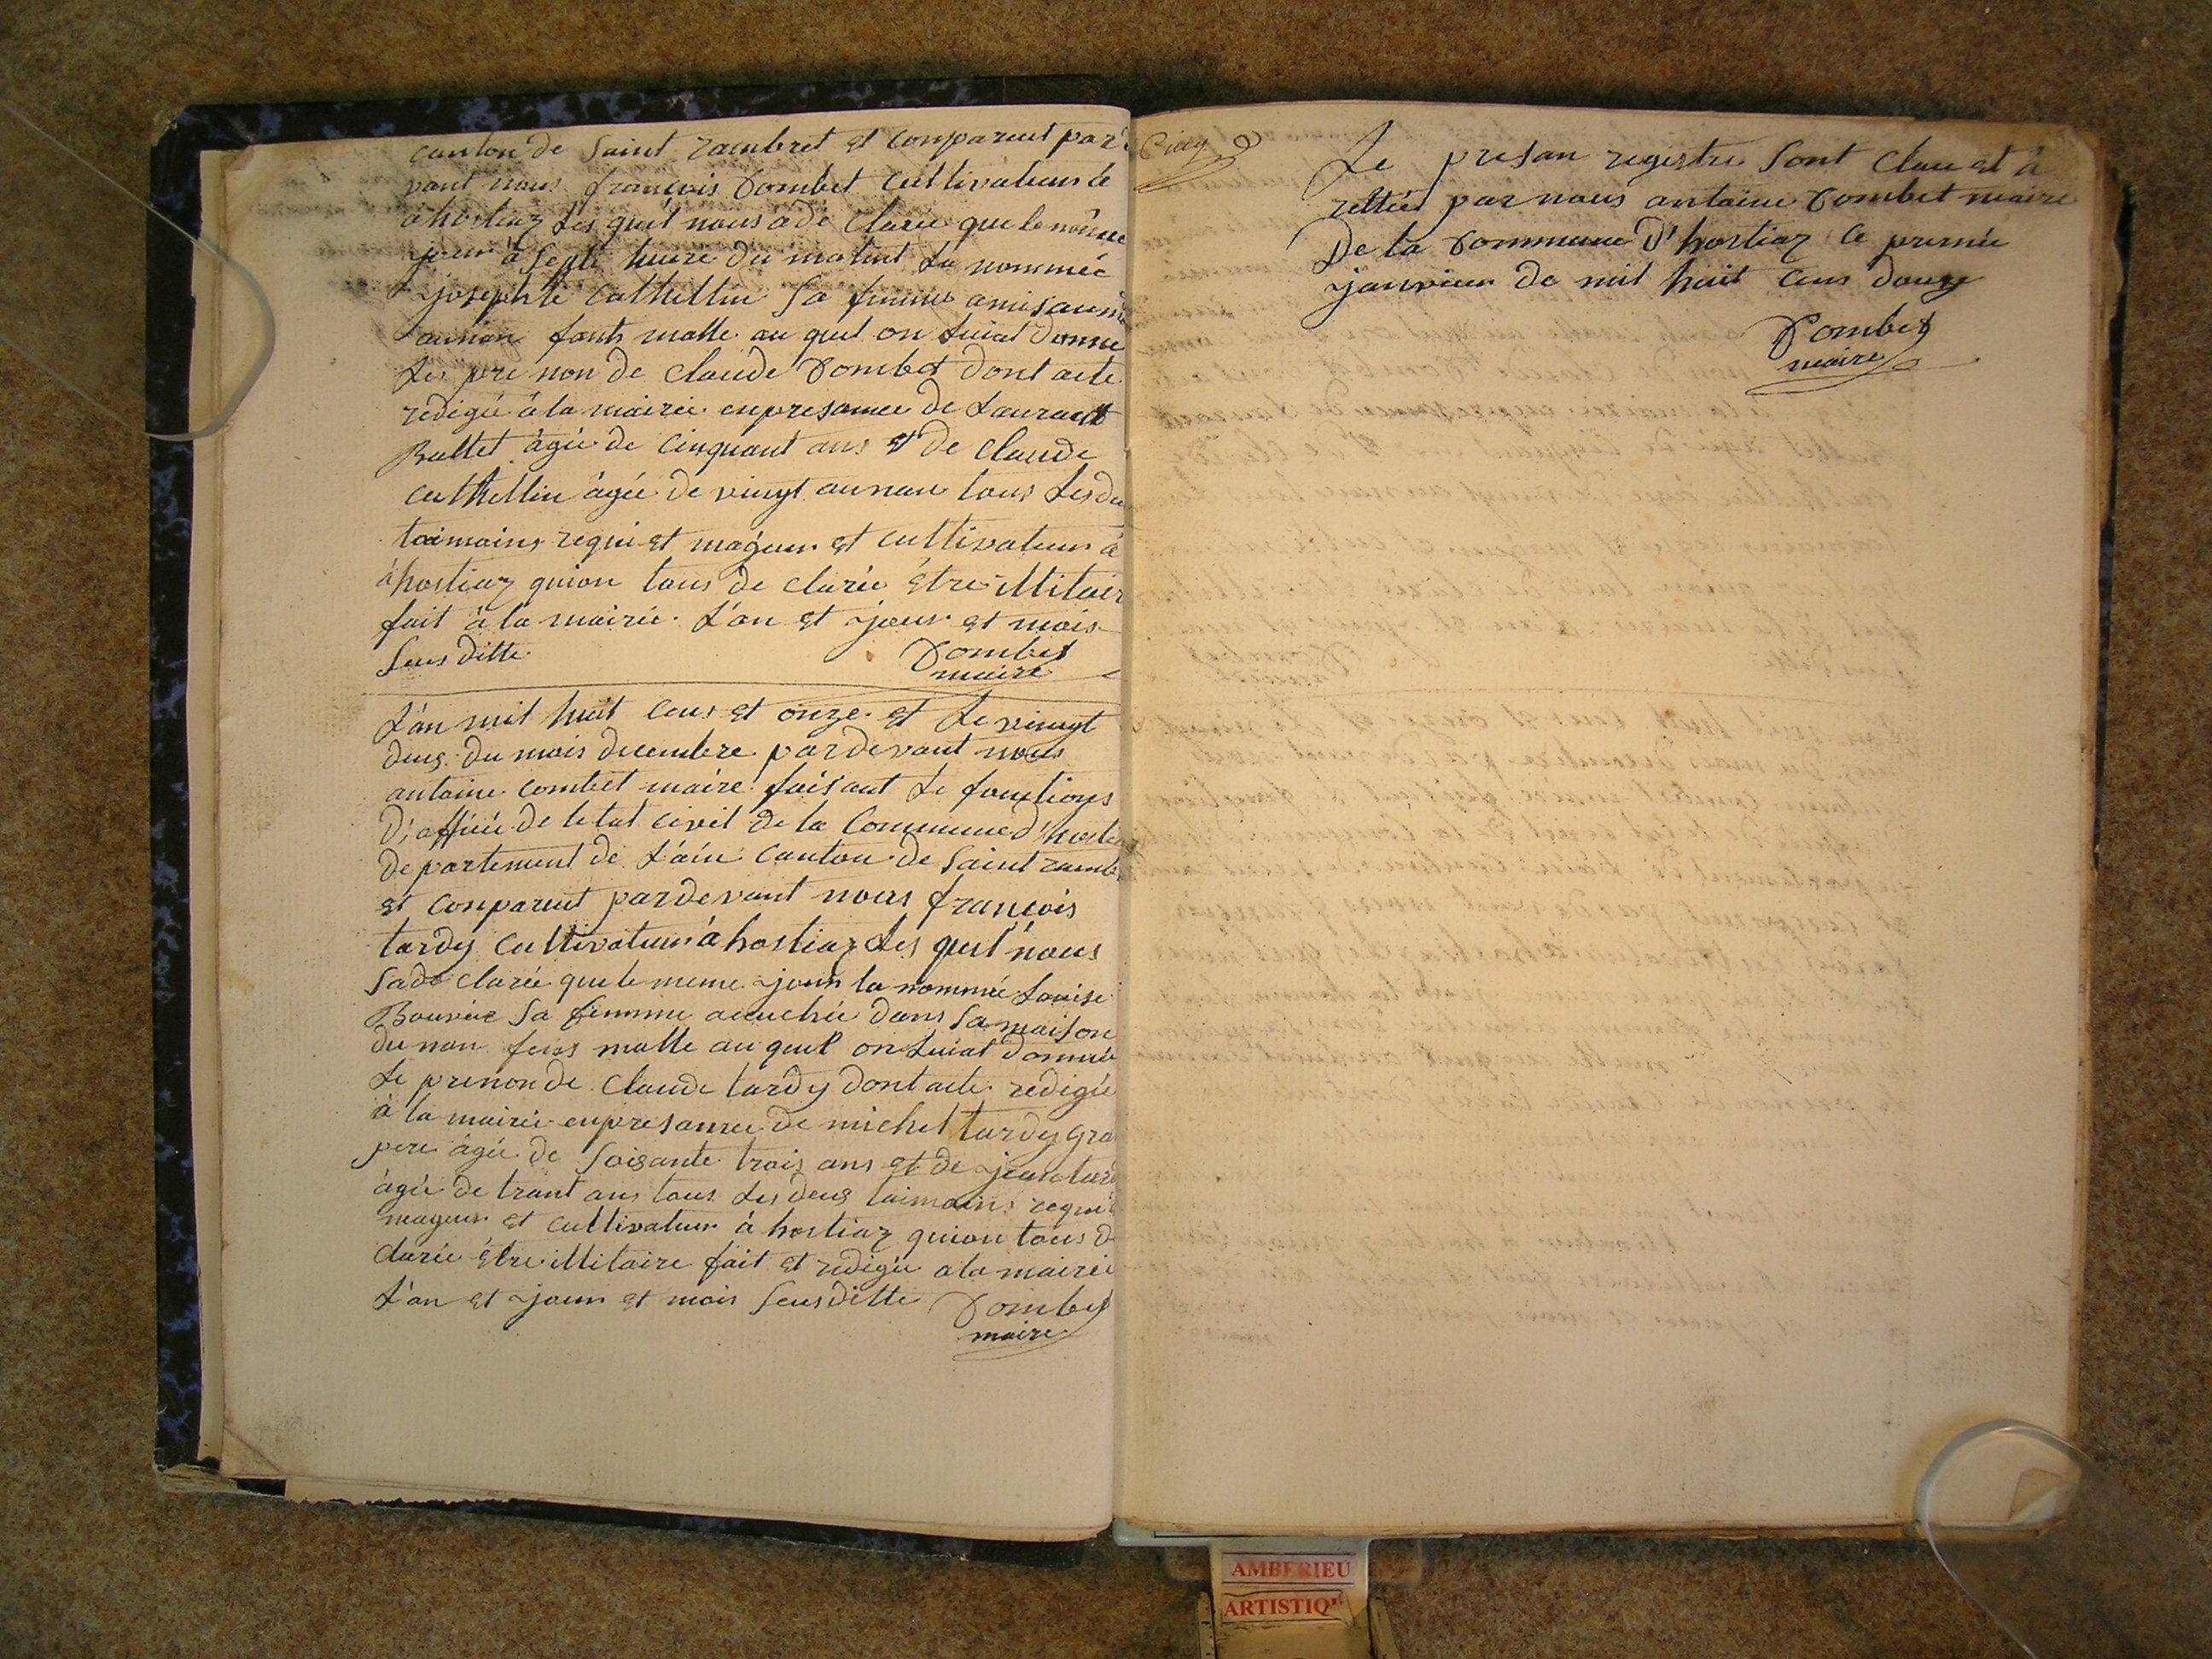 canton de Saint rambret et conparent par de
vant nous françois Combet cultivateur à
à hostiaz Les quel nous a dé clarée que le même
jour à septe heure du matint La nommée
josephte cathellin sa femme a mis au m
aumon fants malle au quel on Luiat donne
Les pre non de Claude Combet dont acte
redigée à la mairie en presance de Laurant
Ballet âgée de cinquant ans et de Claude
cathellin âgée de vingt aunau tous Les deu
taimoins requi et mageur et cultivateur à
à hostiaz quion tous de clarée être illitair
fait à la mairie. L'an et jour et mois
Sus ditte
Combet
maire
L'an mil huit cens et onze et Le vingt
deus du mois decembre par devant nous
antoine Combet maire faisant Le fonctions
D'officie De letat civil De la Commune d'hostiaz
De partement de L'ain Canton de Saint ramb
et conparent pardevant nous françois
tardy cultivateur à hostiaz Les quel nous
sade clarée que le meme jour la nommée Louise
Bouvier sa femme acuchée dans sa maison
du non fens malle au quel on Luiat donnée
Le prenon de Claude tardy dont acte redigée
à la mairie en presance de michel tardy gra
pere âgée de soisante trois ans et de jean tard
âgée de trant ans tous Les deus taimoins requi
mageur et cultivateur à hostiaz quion tous d
clarée être illitaire fait et redigée a la mairie
L'an et jour et mois Susditte
Combet
maire
Le presan registre Sont Clau et à
rettée par nous antoine Combet maire
De la Commune D'hostiaz le premie
janvier de mil huit cens douze
Combet
maire
AMBERIEU
ARTISTIQ